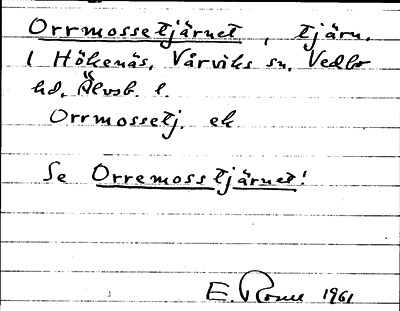 Orrmossetjärnet, tjärn.
I Hökenäs, Vårviks sn, Vedbo
hd, Älvsb. l.
Orrmossetj. ek
Se Orremosstjärnet!
E. Rosell 1961